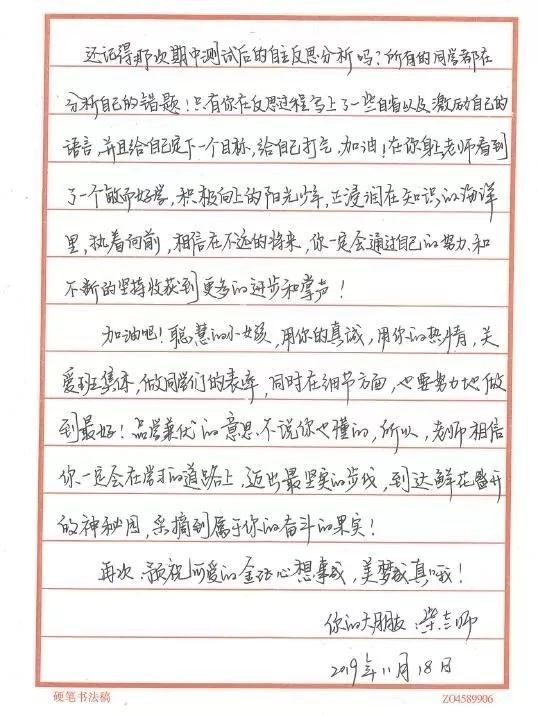 还记得那次期中测试后的自主反思分析吗？所有的同学都在
分析自己的错题！只有你在反思过程写上了一些自省以及激励自己的
语言，并且给自己定下一个目标，给自己打气、加油！在你身上老师看到
了一个敏而好学，积极向上的阳光少年，正浸润在知识的海洋
里，执着向前，相信在不远的将来，你一定会通过自己的努力和
不断的坚持收获到更多的进步和掌声！
加油吧！聪慧的小女孩，用你的真诚，用你的热情，关
爱班集体，做同学们的表率，同时在细节方面，也要努力地做
到最好！品学兼优的意思不说你也懂的，所以，老师相信
你一定会在学习的道路上，迈出最坚实的步伐，到达鲜花盛开
的神秘园，采摘到属于你的奋斗的果实！
再次预祝可爱的金 心想事成，美梦成真哦！
你的大朋友：柴老师
2019年11月18日
硬笔书法稿 ZO4589906